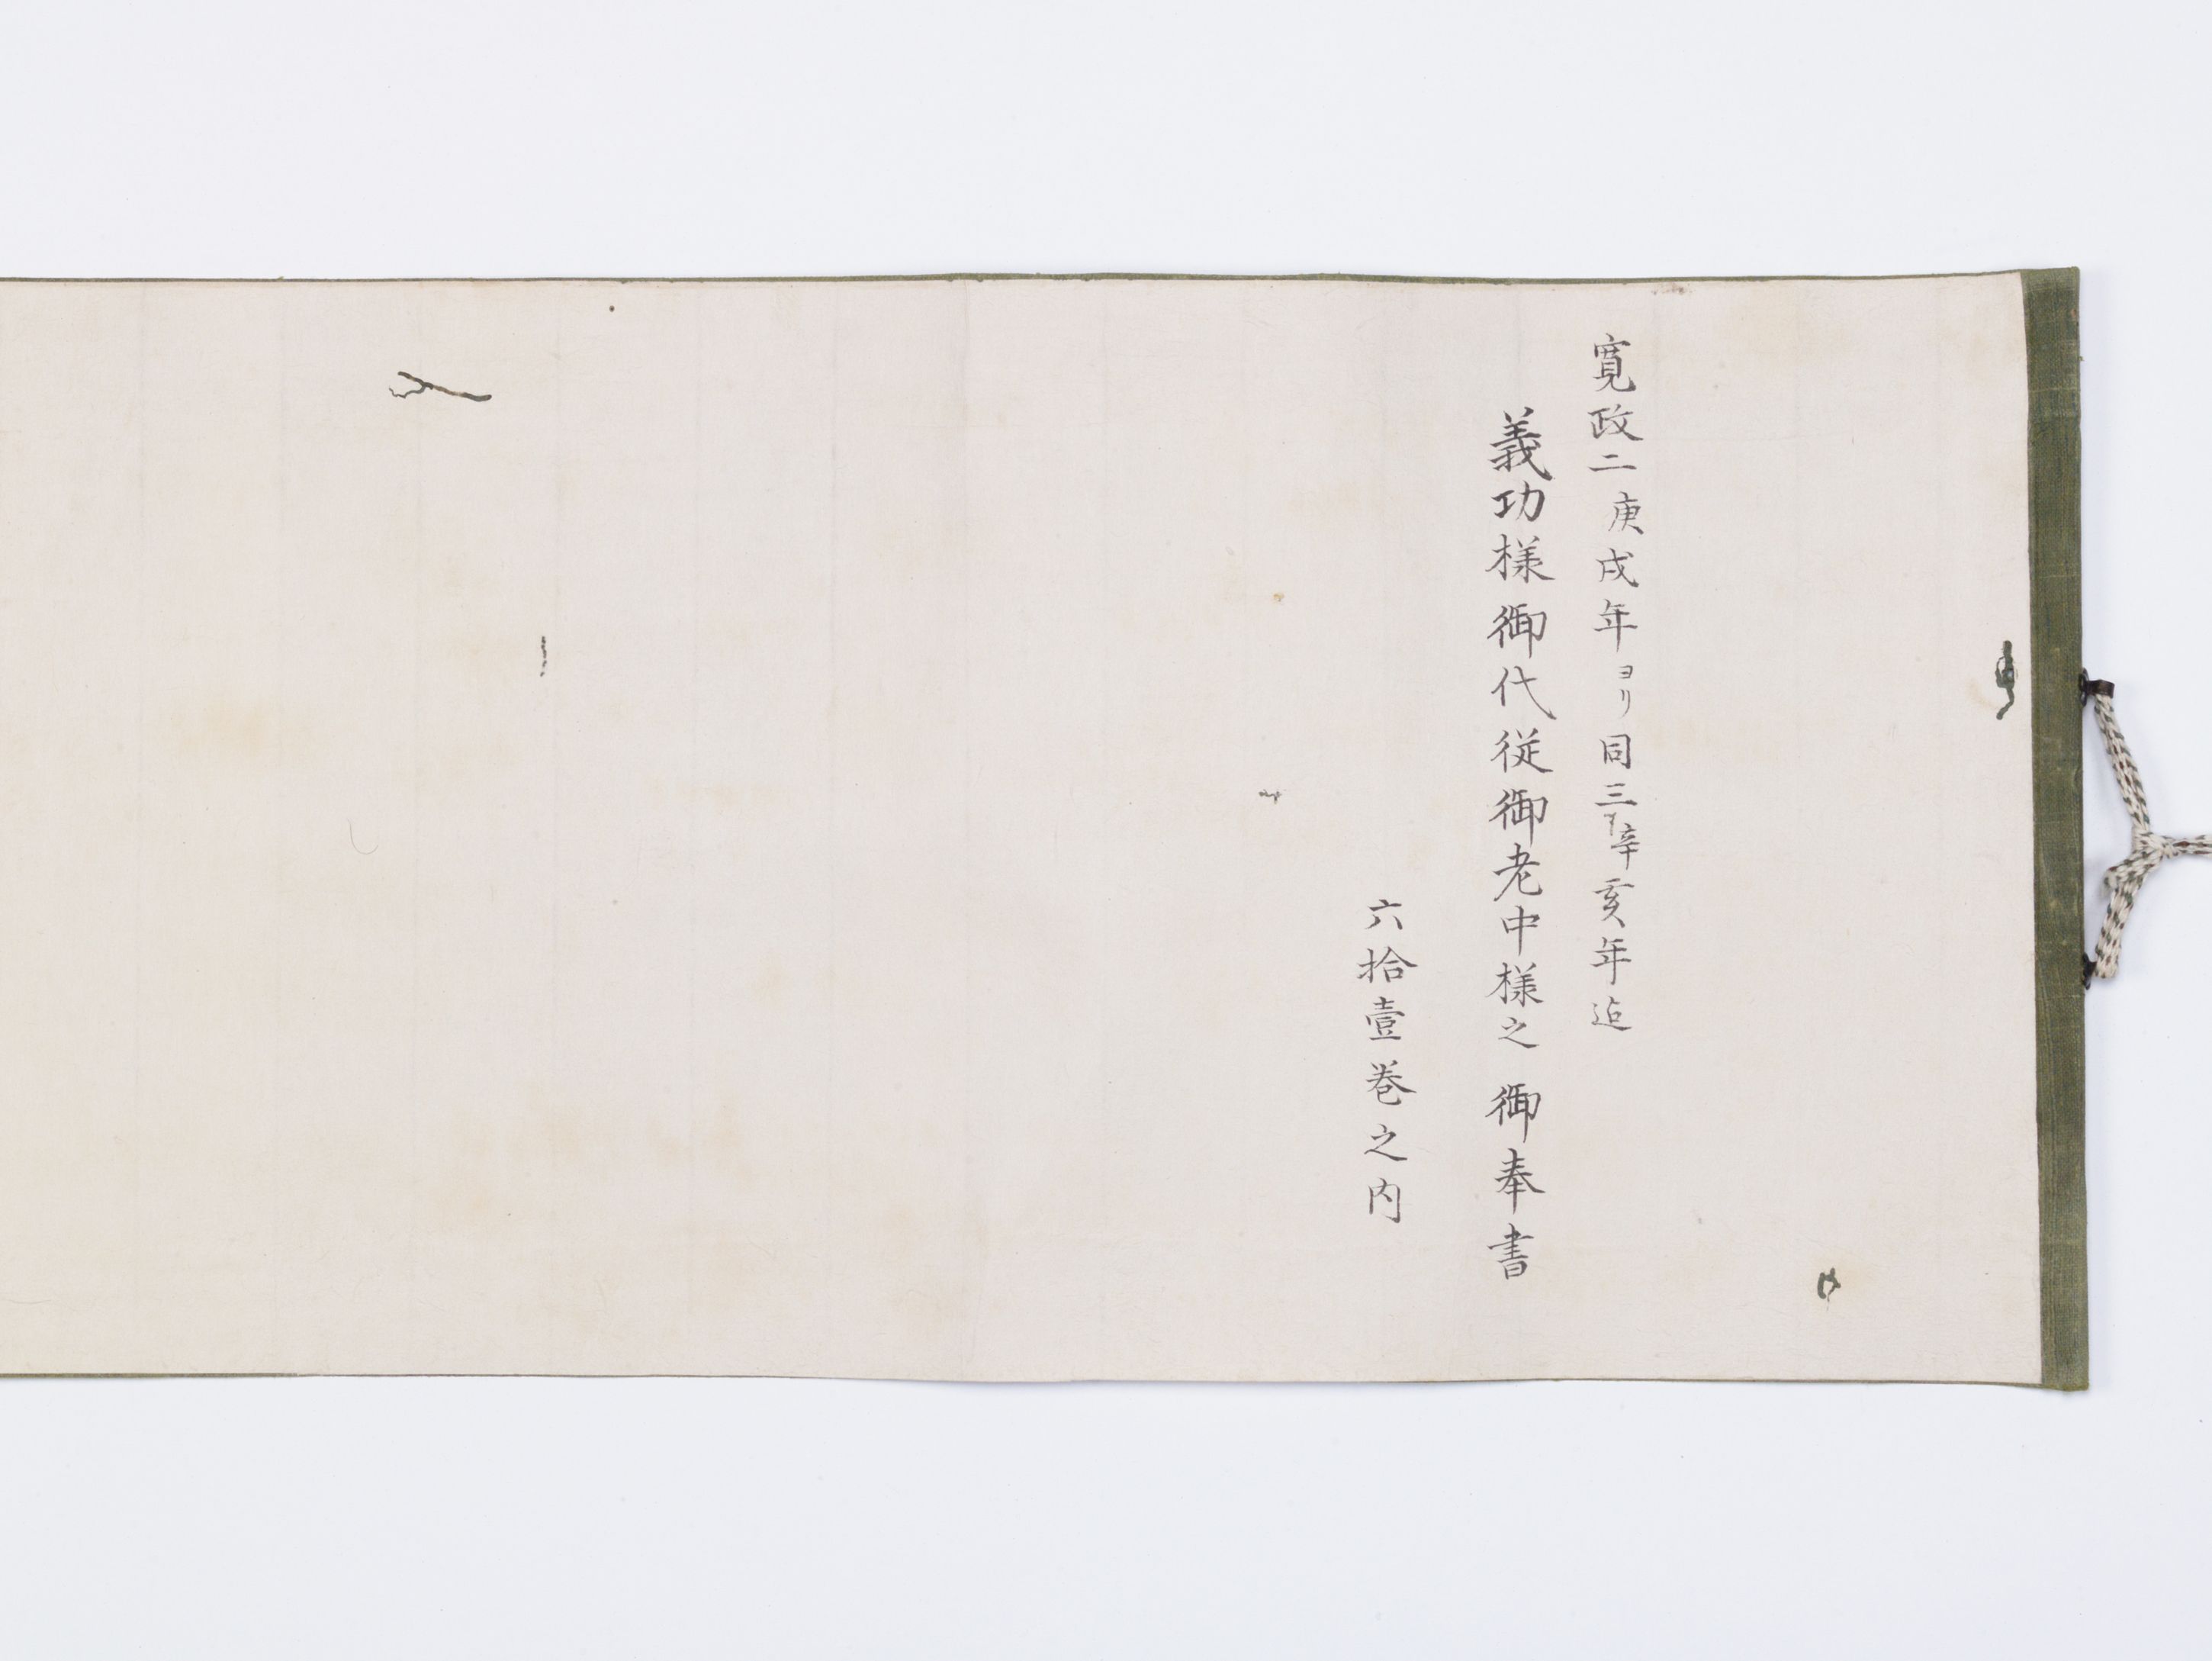 寛政二庚戌年ヨリ同三辛亥年迠
義功様御代従御老中様之御奉書
六拾壹巻之内